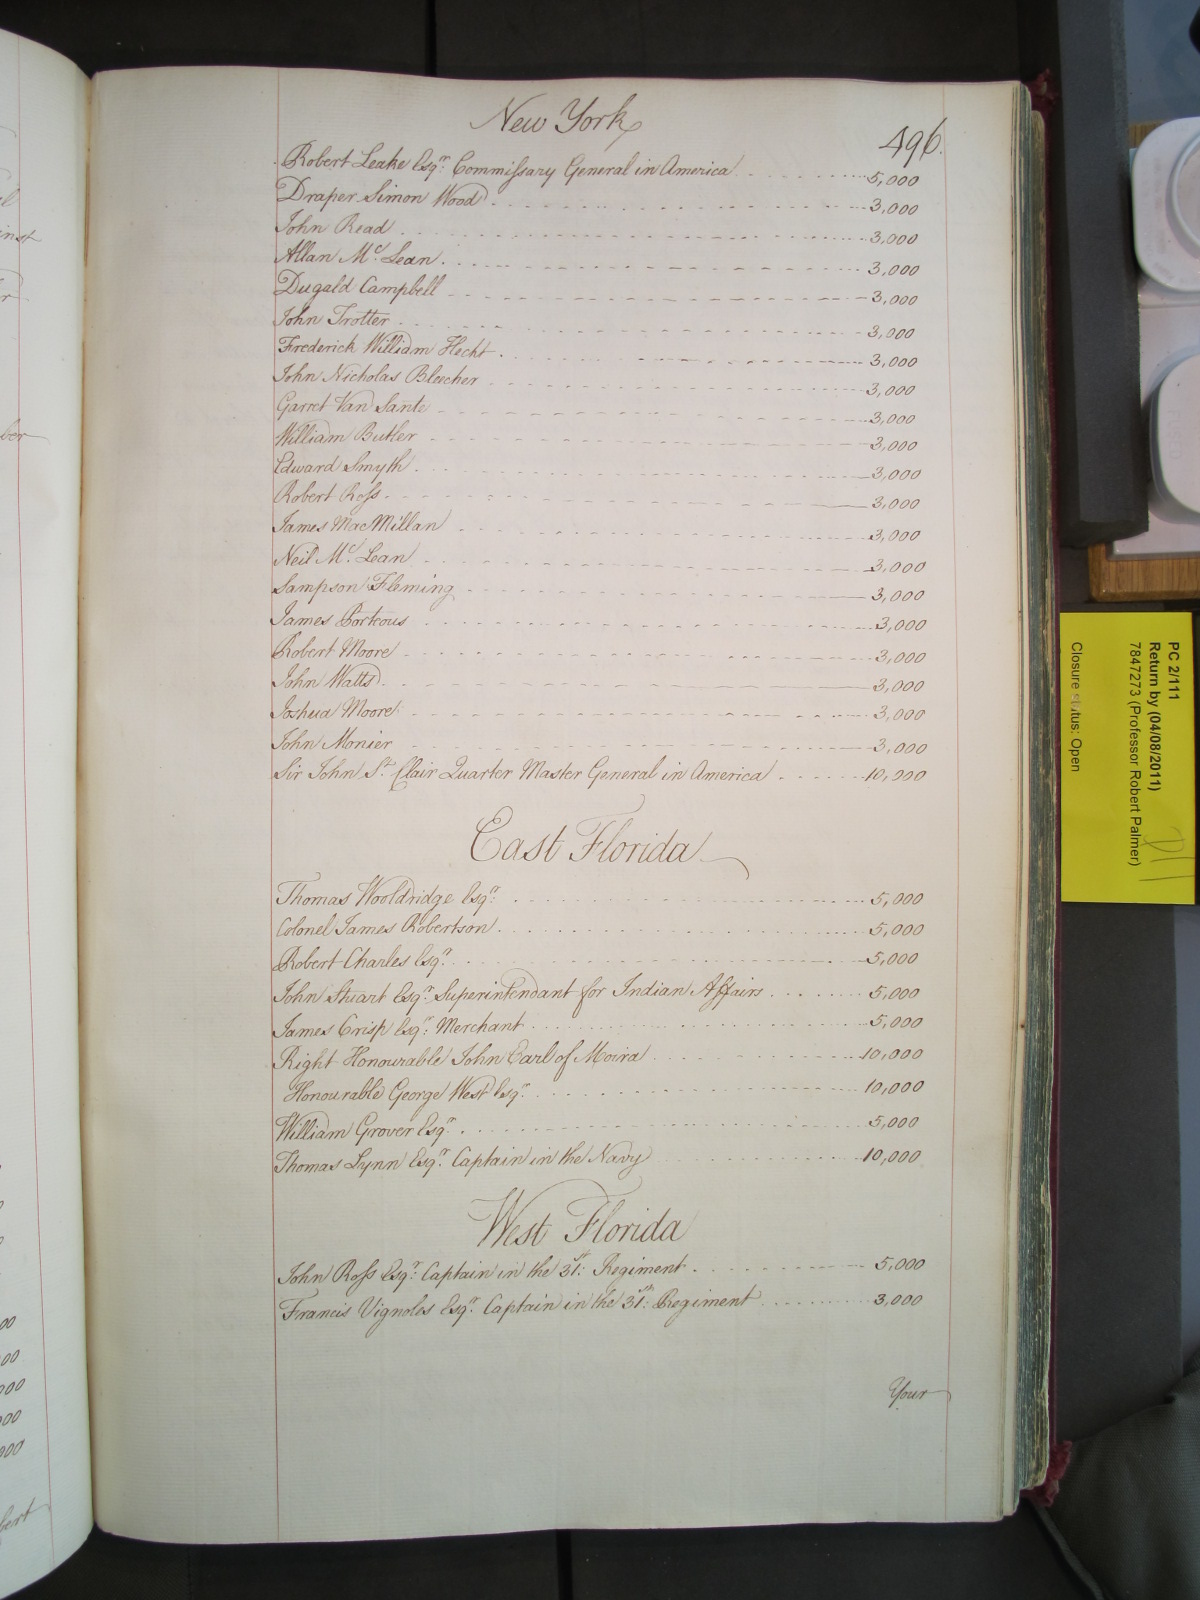 New York
496.
Robert Leake Esqr. Commissary General in America 5,000
Draper Simon Wood 3,000
John Read 3,000
Allan Mc. Lean 3,000
Dugald Campbell 3,000
John Trotter 3,000
Frederick William Hecht 3,000
John Nicholas Bleecher 3,000
Garret Van Sante 3,000
William Butler 3,000
Edward Smyth 3,000
Robert Ross 3,000
James MacMillan 3,000
Neil Mc. Lean 3,000
Sampson Fleming 3,000
James Porteous 3,000
Robert Moore 3,000
John Watts 3,000
Joshua Moore 3,000
John Monier 3,000
Sir John St. Clair Quarter Master General in America 10,000
East Florida
Thomas Wooldridge Esqr. 5,000
Colonel James Robertson 5,000
Robert Charles Esqr. 5,000
John Stuart Esqr. Superintendant for Indian Affairs 5,000
James Crisp Esqr. Merchant 5,000
Right Honourable John Earl of Moira 10,000
Honourable George West Esqr. 10,000
William Grover Esqr. 5,000
Thomas Lynn Esqr. Captain in the Navy 10,000
West Florida
John Ross Esqr. Captain in the 31st. Regiment 5,000
Francis Vignoles Esqr. Captain in the 31st. Regiment 3,000
Your
PC 2/111
Return by (04/08/2011)
7847273 (Professor Robert Palmer)
Closure status: Open